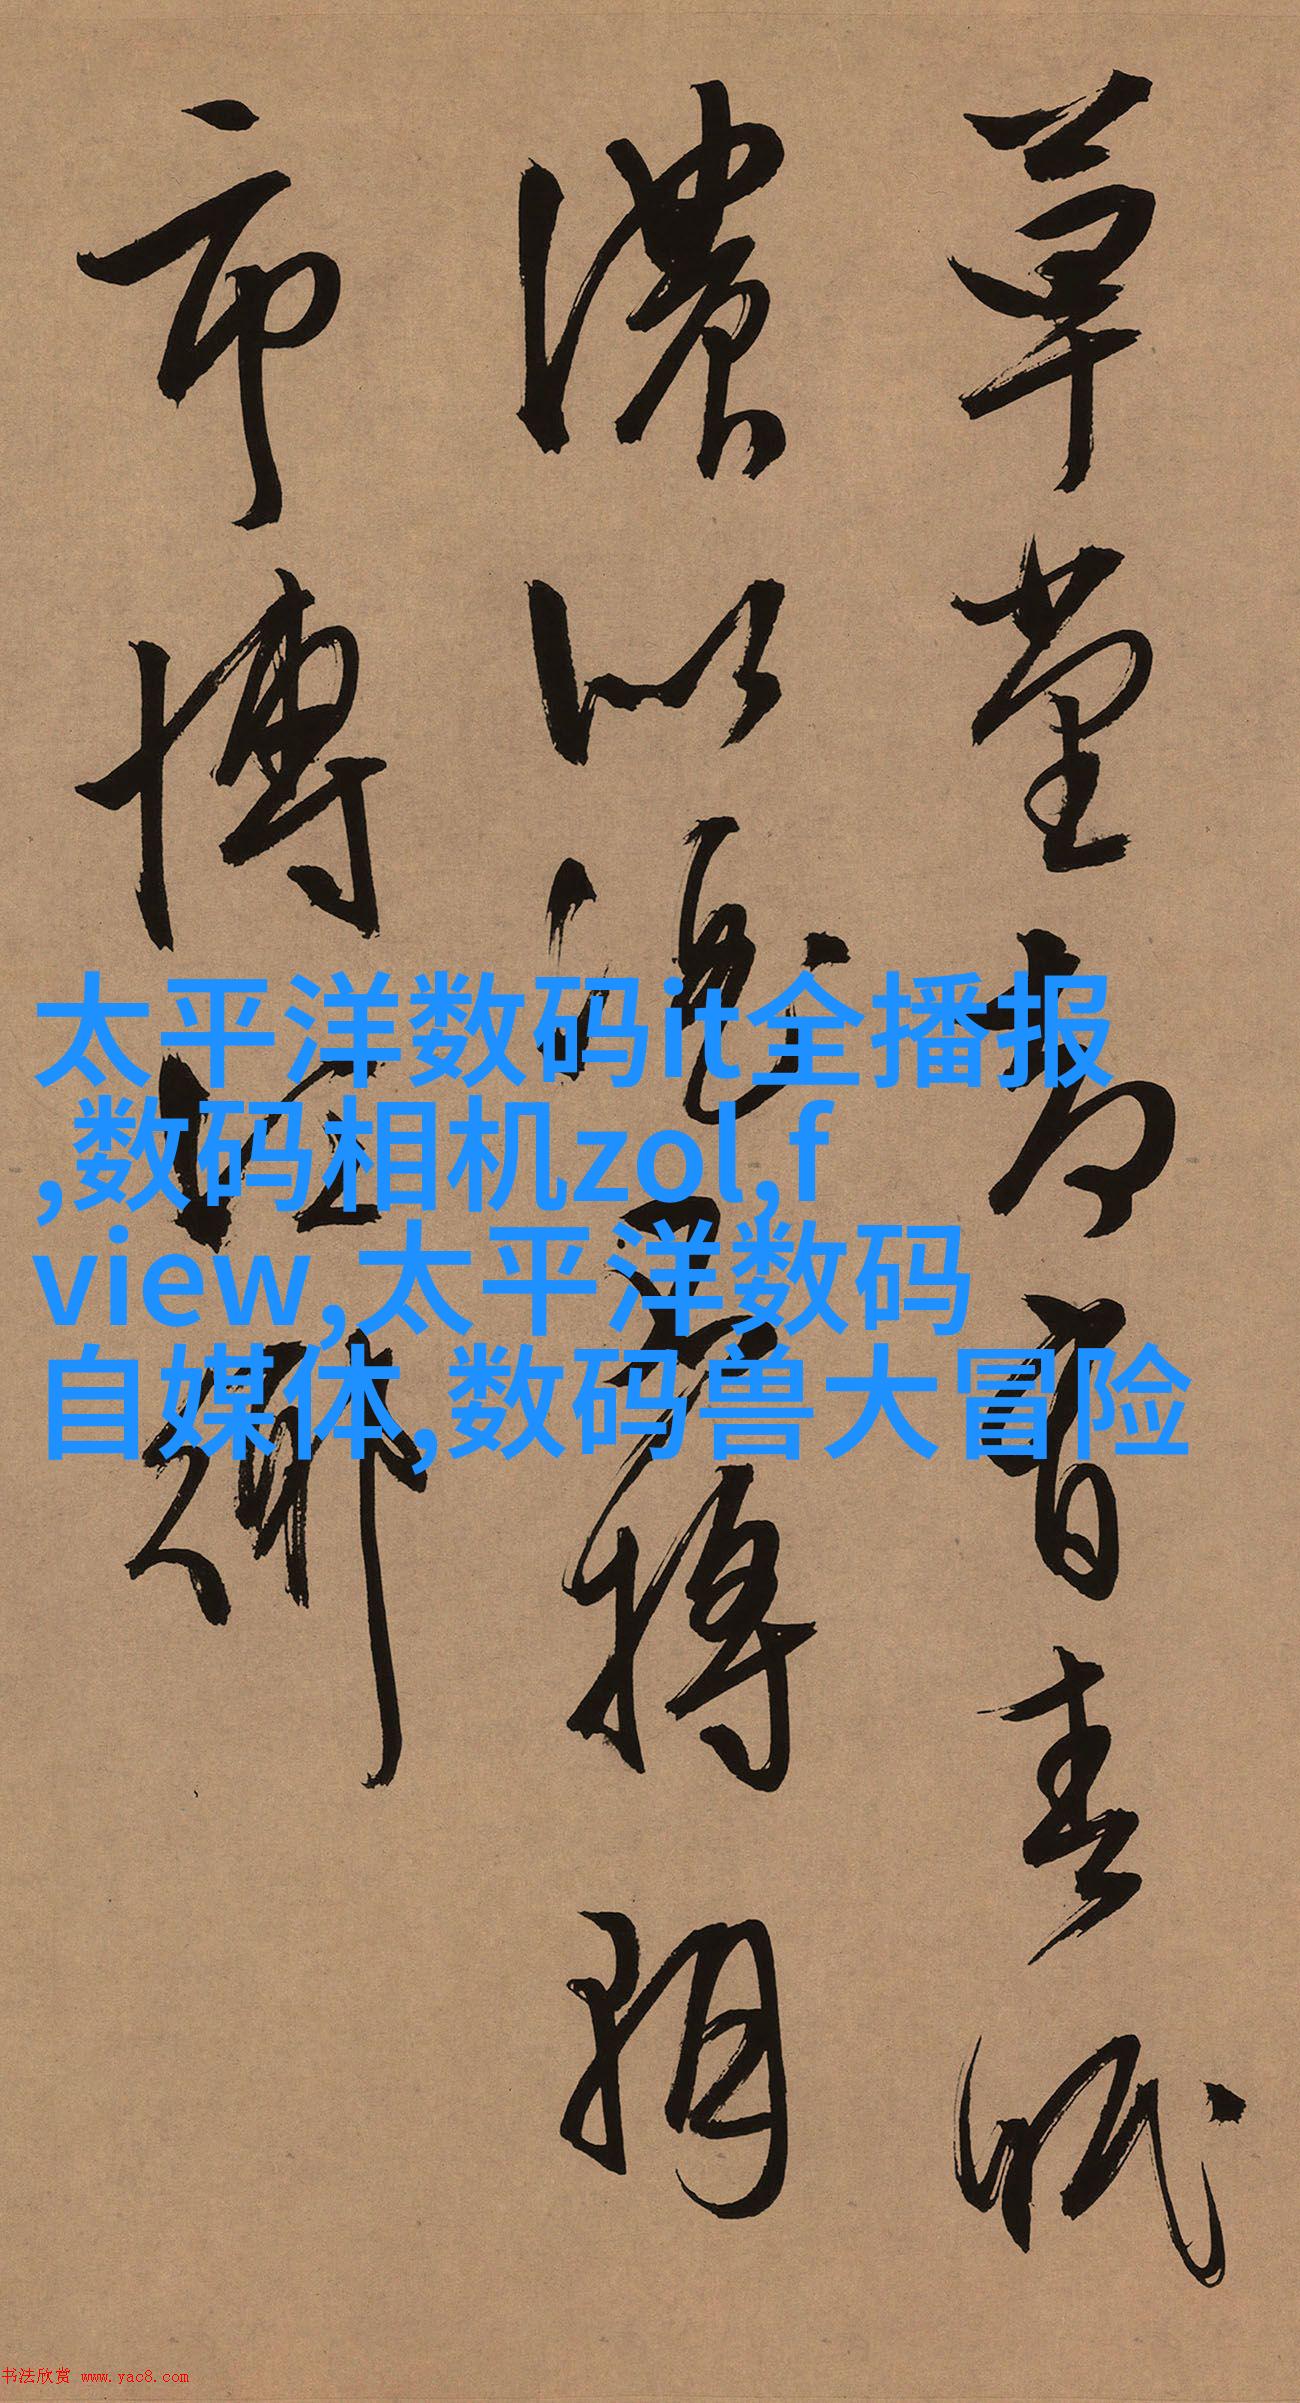 草堂有春眠
濃將朝
市博江鄉
太平洋数码it全播报
,数码相机zol,f
view,太平洋数码
自媒体,数码兽大冒险
书法欣赏 www.yac8.com